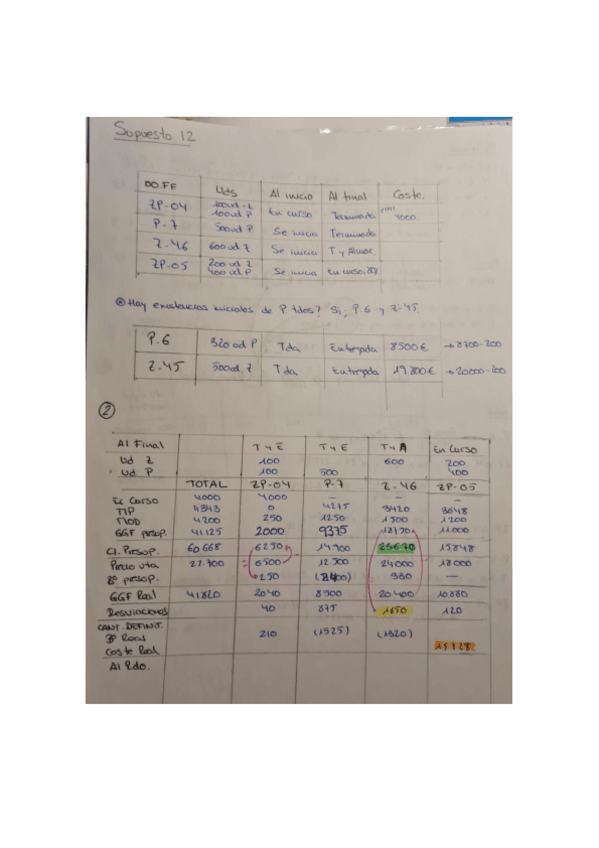 Supuesto 12
OO.FF Uds Al inicio Al final Coste
ZP-04 100ud-Z 100ud P En curso Terminada 4000
P-7 500ud P Se inicia Terminada
Z-46 600 ud Z Se inicia T y Almac.
ZP-05 200 ud Z 400 ud P Se inicia En curso
⊗ Hay existencias iniciales de P tdos? Sí; P.6 y Z-45
P.6 320 ud P Tda Entregada 8500€ → 8700-200
Z-45 500ud. Z Tda Entregada 19800€ → 20000-200
②
Al Final T y E T y E T y A En Curso
Ud Z 100 600 200
Ud P 100 500 400
TOTAL ZP-04 P-7 Z-46 ZP-05
Ec Curso 4000 4000 — — —
TIP 0 4275 3420 3648
MOD 4200 250 1250 1500 1200
GGF presop. 41125 2000 9375 11000
CI. Presop. 60668 6250 14900 23670 15848
Precio vta 6500 12500 24000 18000
Bº presop. 250 330 —
GGF Real 41820 2040 20400 10880
Desviaciones 40 875 1650 120
CANT. DEFINIT.
Bº Real 210 (1525) (1320)
Coste Real 15728
Al Rdo.